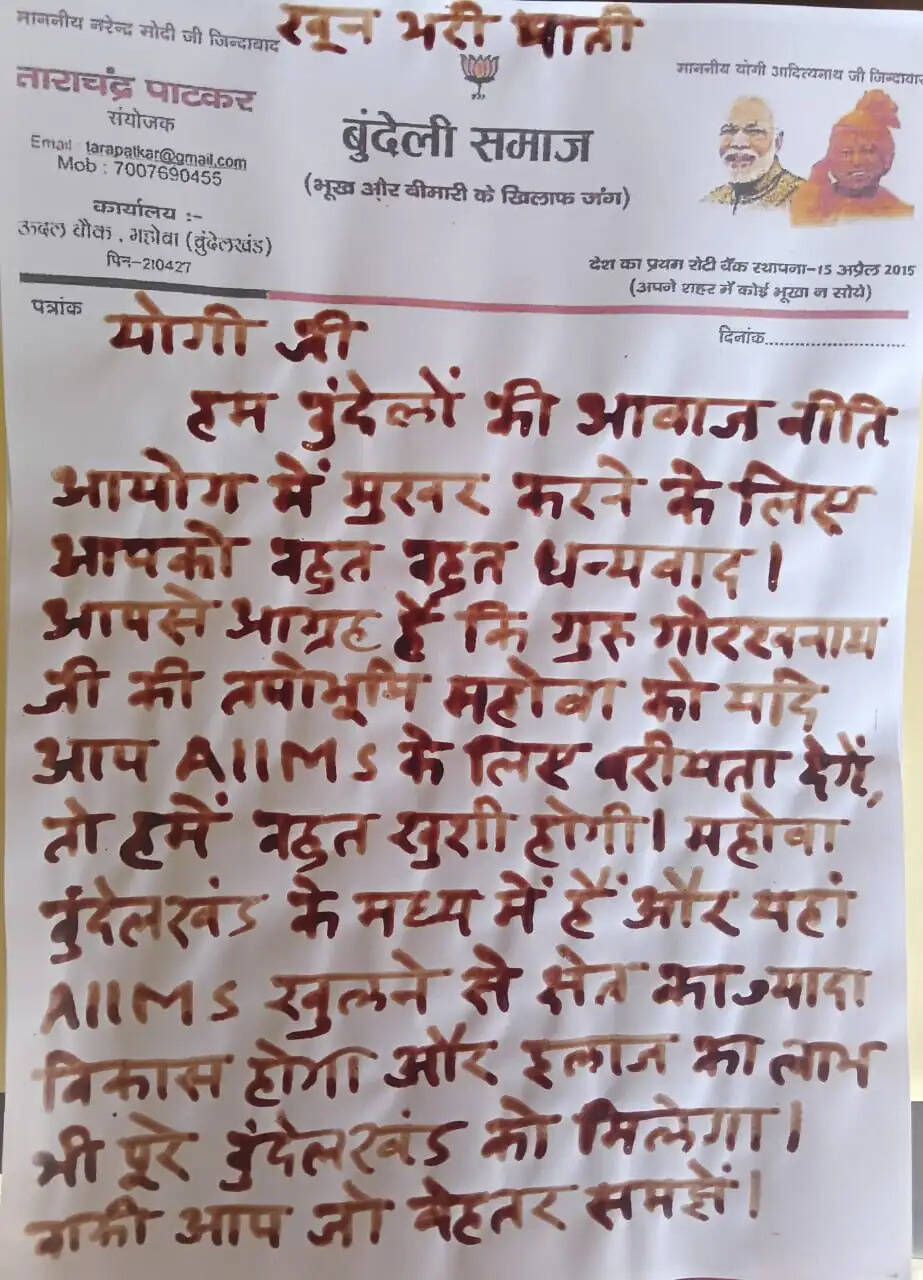 माननीय नरेन्द्र मोदी जी जिन्दाबाद
खून भरी पाती
माननीय योगी आदित्यनाथ जी जिन्दाबाद
ताराचंद्र पाटकर
संयोजक
Email : tarapatkar@gmail.com
Mob : 7007690455
कार्यालय :-
ऊदल चौक , महोबा (बुंदेलखंड)
पिन-210427
बुंदेली समाज
(भूख और बीमारी के खिलाफ जंग)
देश का प्रथम रोटी बैंक स्थापना-15 अप्रैल 2015
(अपने शहर में कोई भूखा न सोये)
पत्रांक
दिनांक............................
योगी जी
हम बुंदेलों की आवाज नीति
आयोग में मुखर करने के लिए
आपको बहुत बहुत धन्यवाद।
आपसे आग्रह है कि गुरु गोरखनाथ
जी की तपोभूमि महोबा को यदि
आप AIIMS के लिए वरीयता देगें,
तो हमें बहुत खुशी होगी। महोबा
बुंदेलखंड के मध्य में हैं और यहां
AIIMS खुलने से क्षेत्र का ज्यादा
विकास होगा और इलाज का लाभ
भी पूरे बुंदेलखंड को मिलेगा।
बाकी आप जो बेहतर समझें।